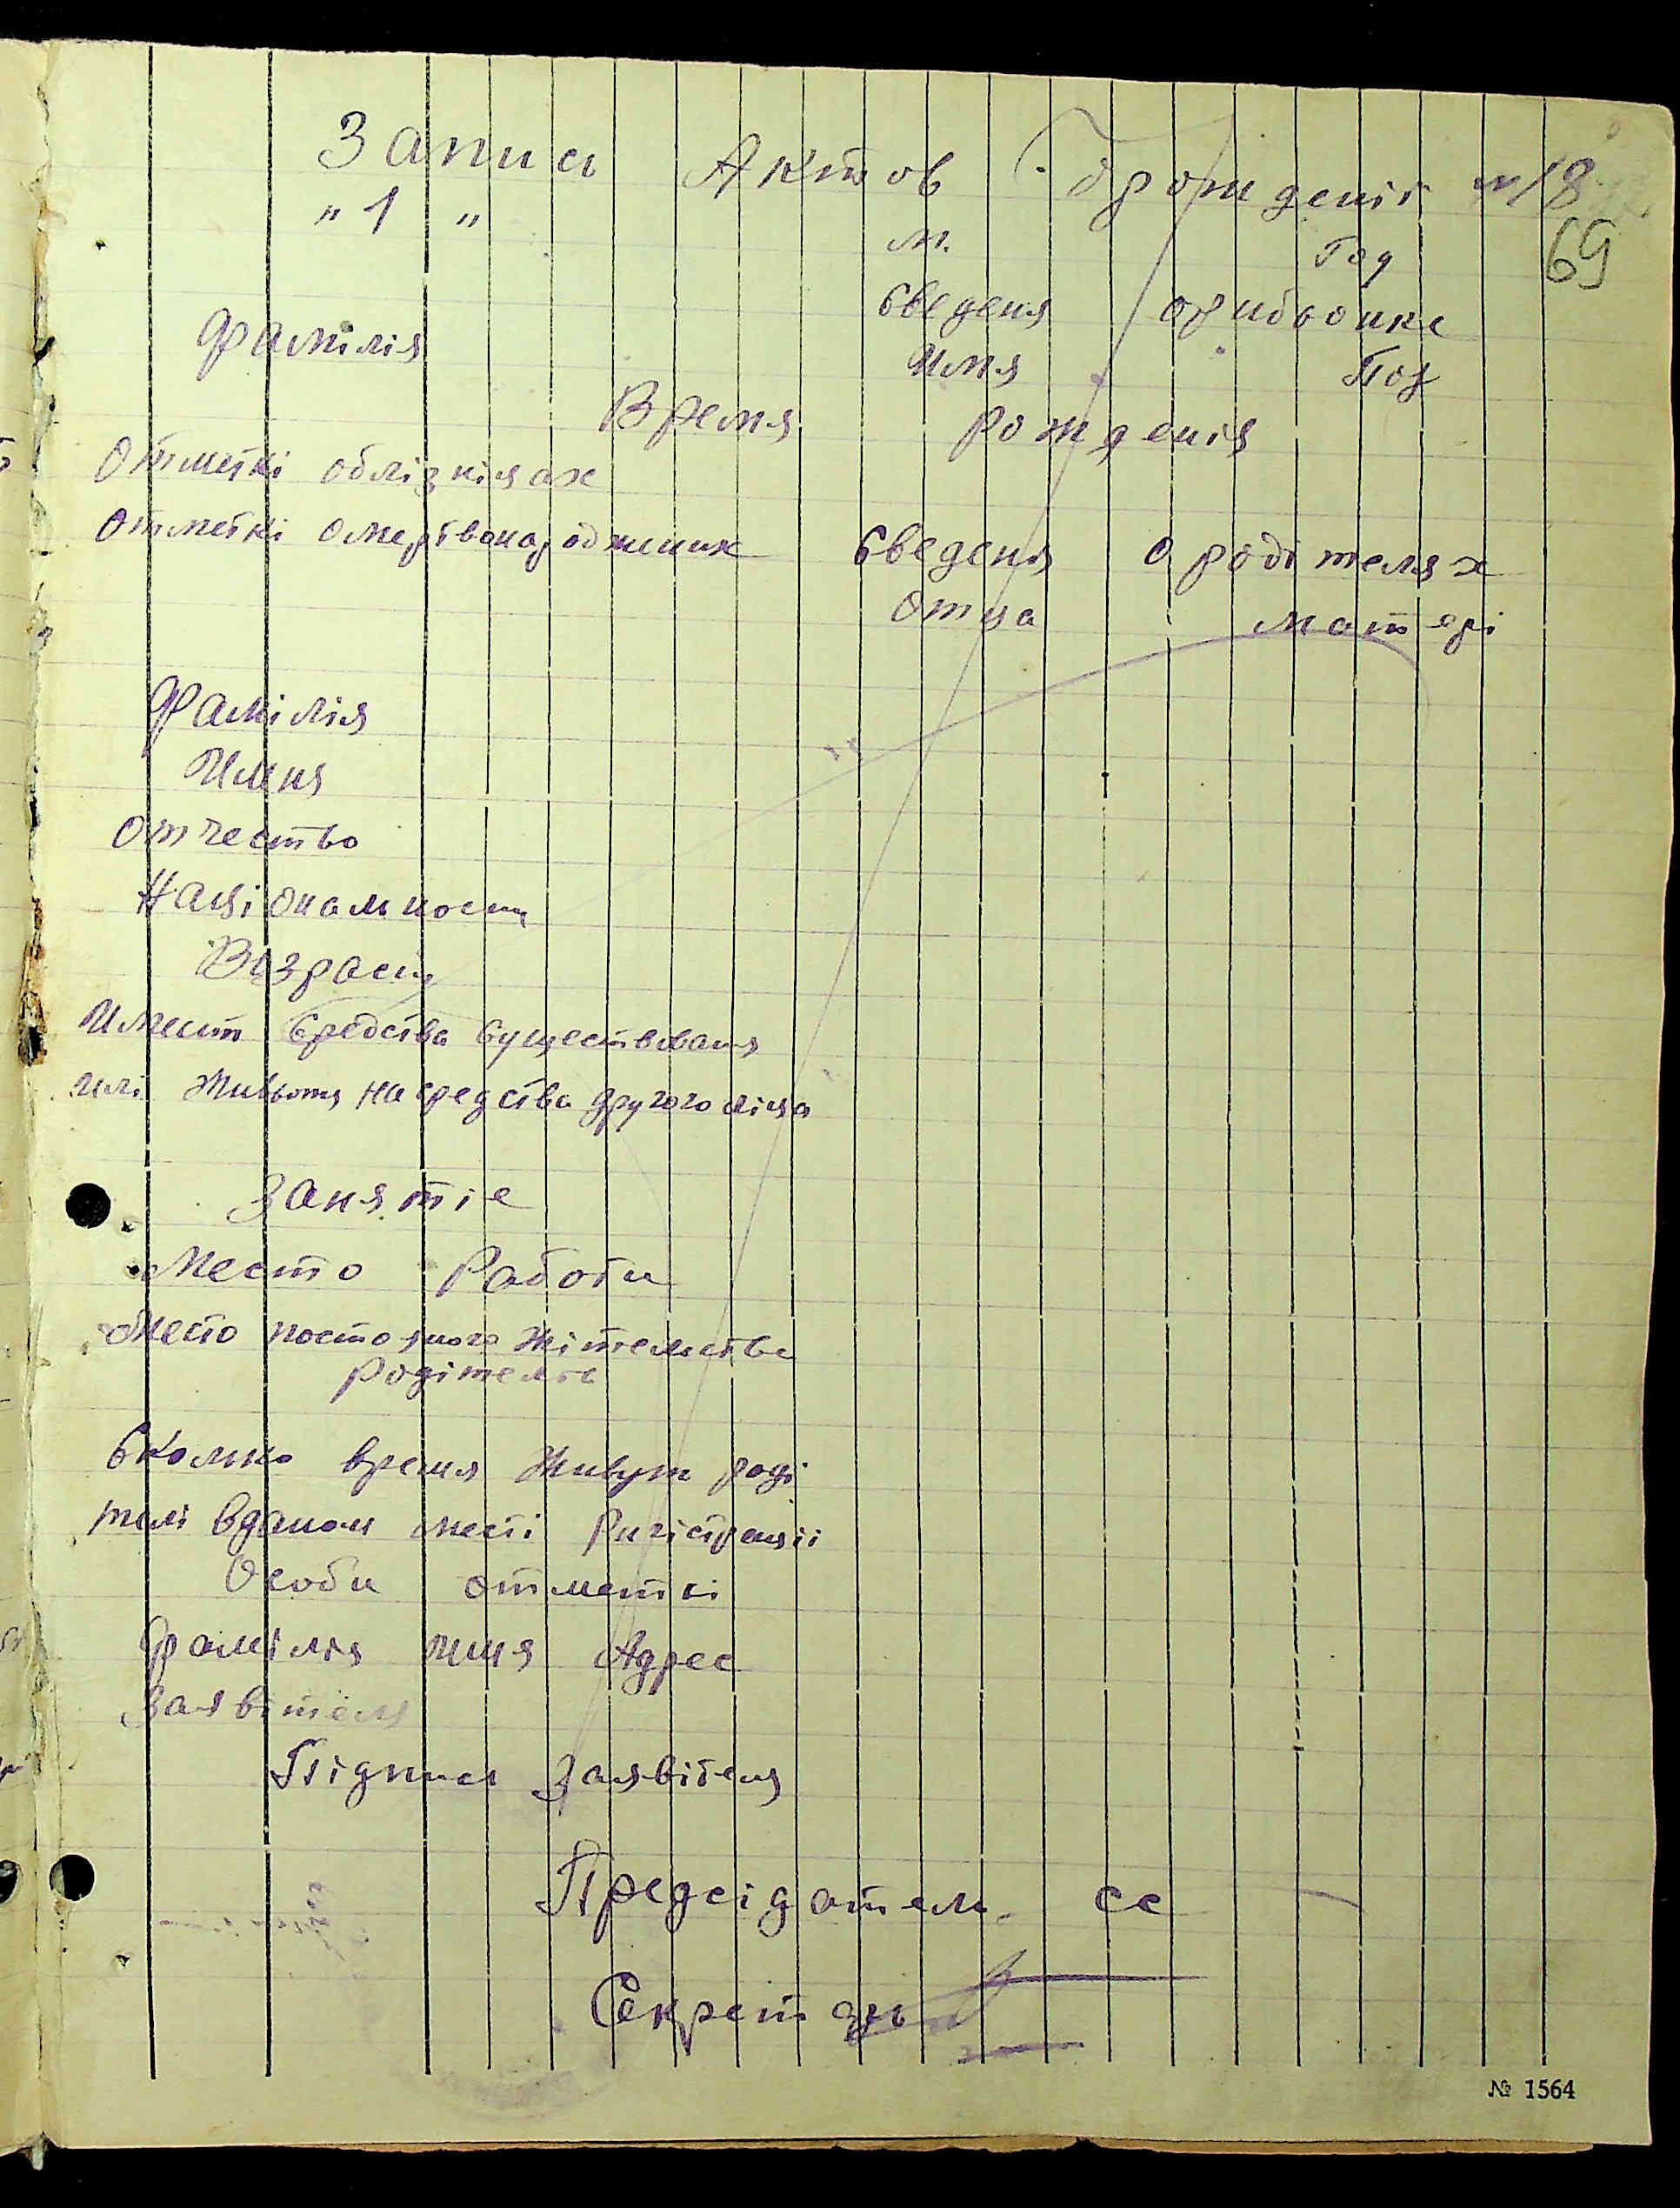 Запись Актов орождениі №18
69
" 1 " м. Год
Сведеня орибьонке
Фамілія Имя Пол
Время рожденія
Отметкі облізнілах
Отметкі омертвонородженик Сведеня о родітелях
Отца Матері
Фамілія
Имия
Отчество
Націоналность
Възрасть
Имеет Средства Существованя
илі Живьотя на средства другого ліца
Занятіе
Место Работи
Место постояного Жітельства
родітелів
Сколко время Живут роді
телі вданом месті Ригістраціі
Особи отметкі
Фамілія имя Адрес
Заявітеля
Підпись Заявітеля
Предсідатель сс
Секретарь
№ 1564